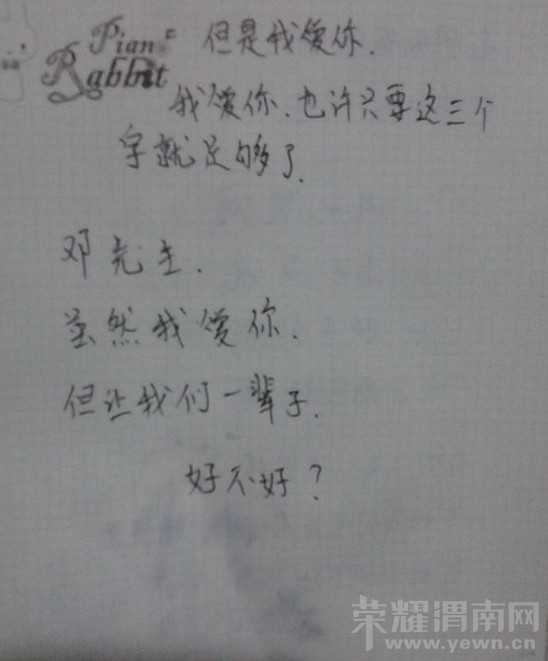 Pian
Rabbit
但是我爱你.
我爱你.也许只要这三个
字就足够了.
邓先生.
虽然我爱你.
但让我们一辈子.
好不好?
荣耀渭南网
www.yewn.cn